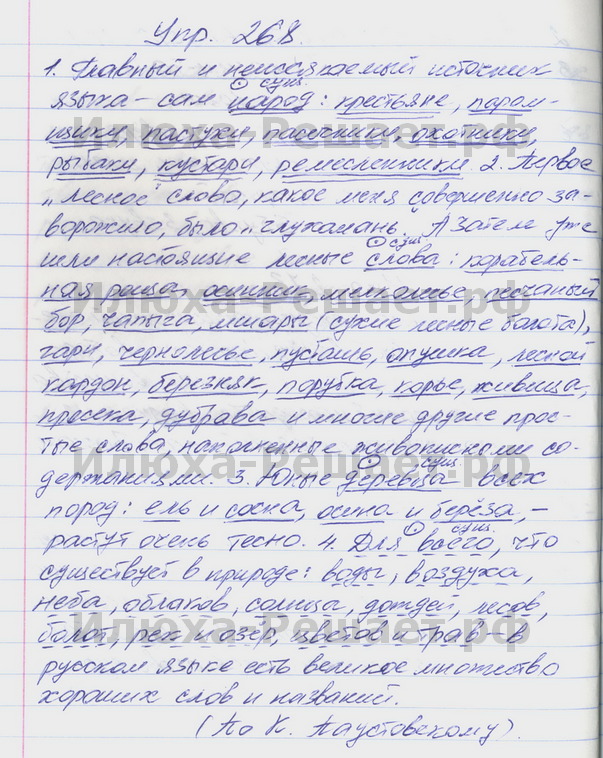 Упр. 268.
1. Главный и неиссякаемый источник
сущ.
языка – сам народ: крестьяне, паром-
щики, пастухи, пасечники, охотники,
рыбаки, кустари, ремесленники. 2. Первое
„лесное" слово, какое меня совершенно за-
ворожило, было „глухомань. Затем уже
сущ.
шли настоящие лесные слова: корабель-
ная роща, осинник, мелколесье, песчаный
бор, чапыга, мшары (сухие лесные болота),
гари, чернолесье, пустошь, опушка, лесной
кордон, березняк, порубка, корье, живица,
просека, дубрава и многие другие прос-
тые слова, наполненные живописными со-
сущ.
держаниями. 3. Юные деревца всех
пород: ель и сосна, осина и берёза, –
сущ.
растут очень тесно. 4. Для всего, что
существует в природе: воды, воздуха,
неба, облаков, солнца, дождей, лесов,
болот, рек и озёр, цветов и трав – в
русском языке есть великое множество
хороших слов и названий.
(По К. Паустовскому).
Илюха-Решает.рф
Илюха-Решает.рф
Илюха-Решает.рф
Илюха-Решает.рф
Илюха-Решает.рф